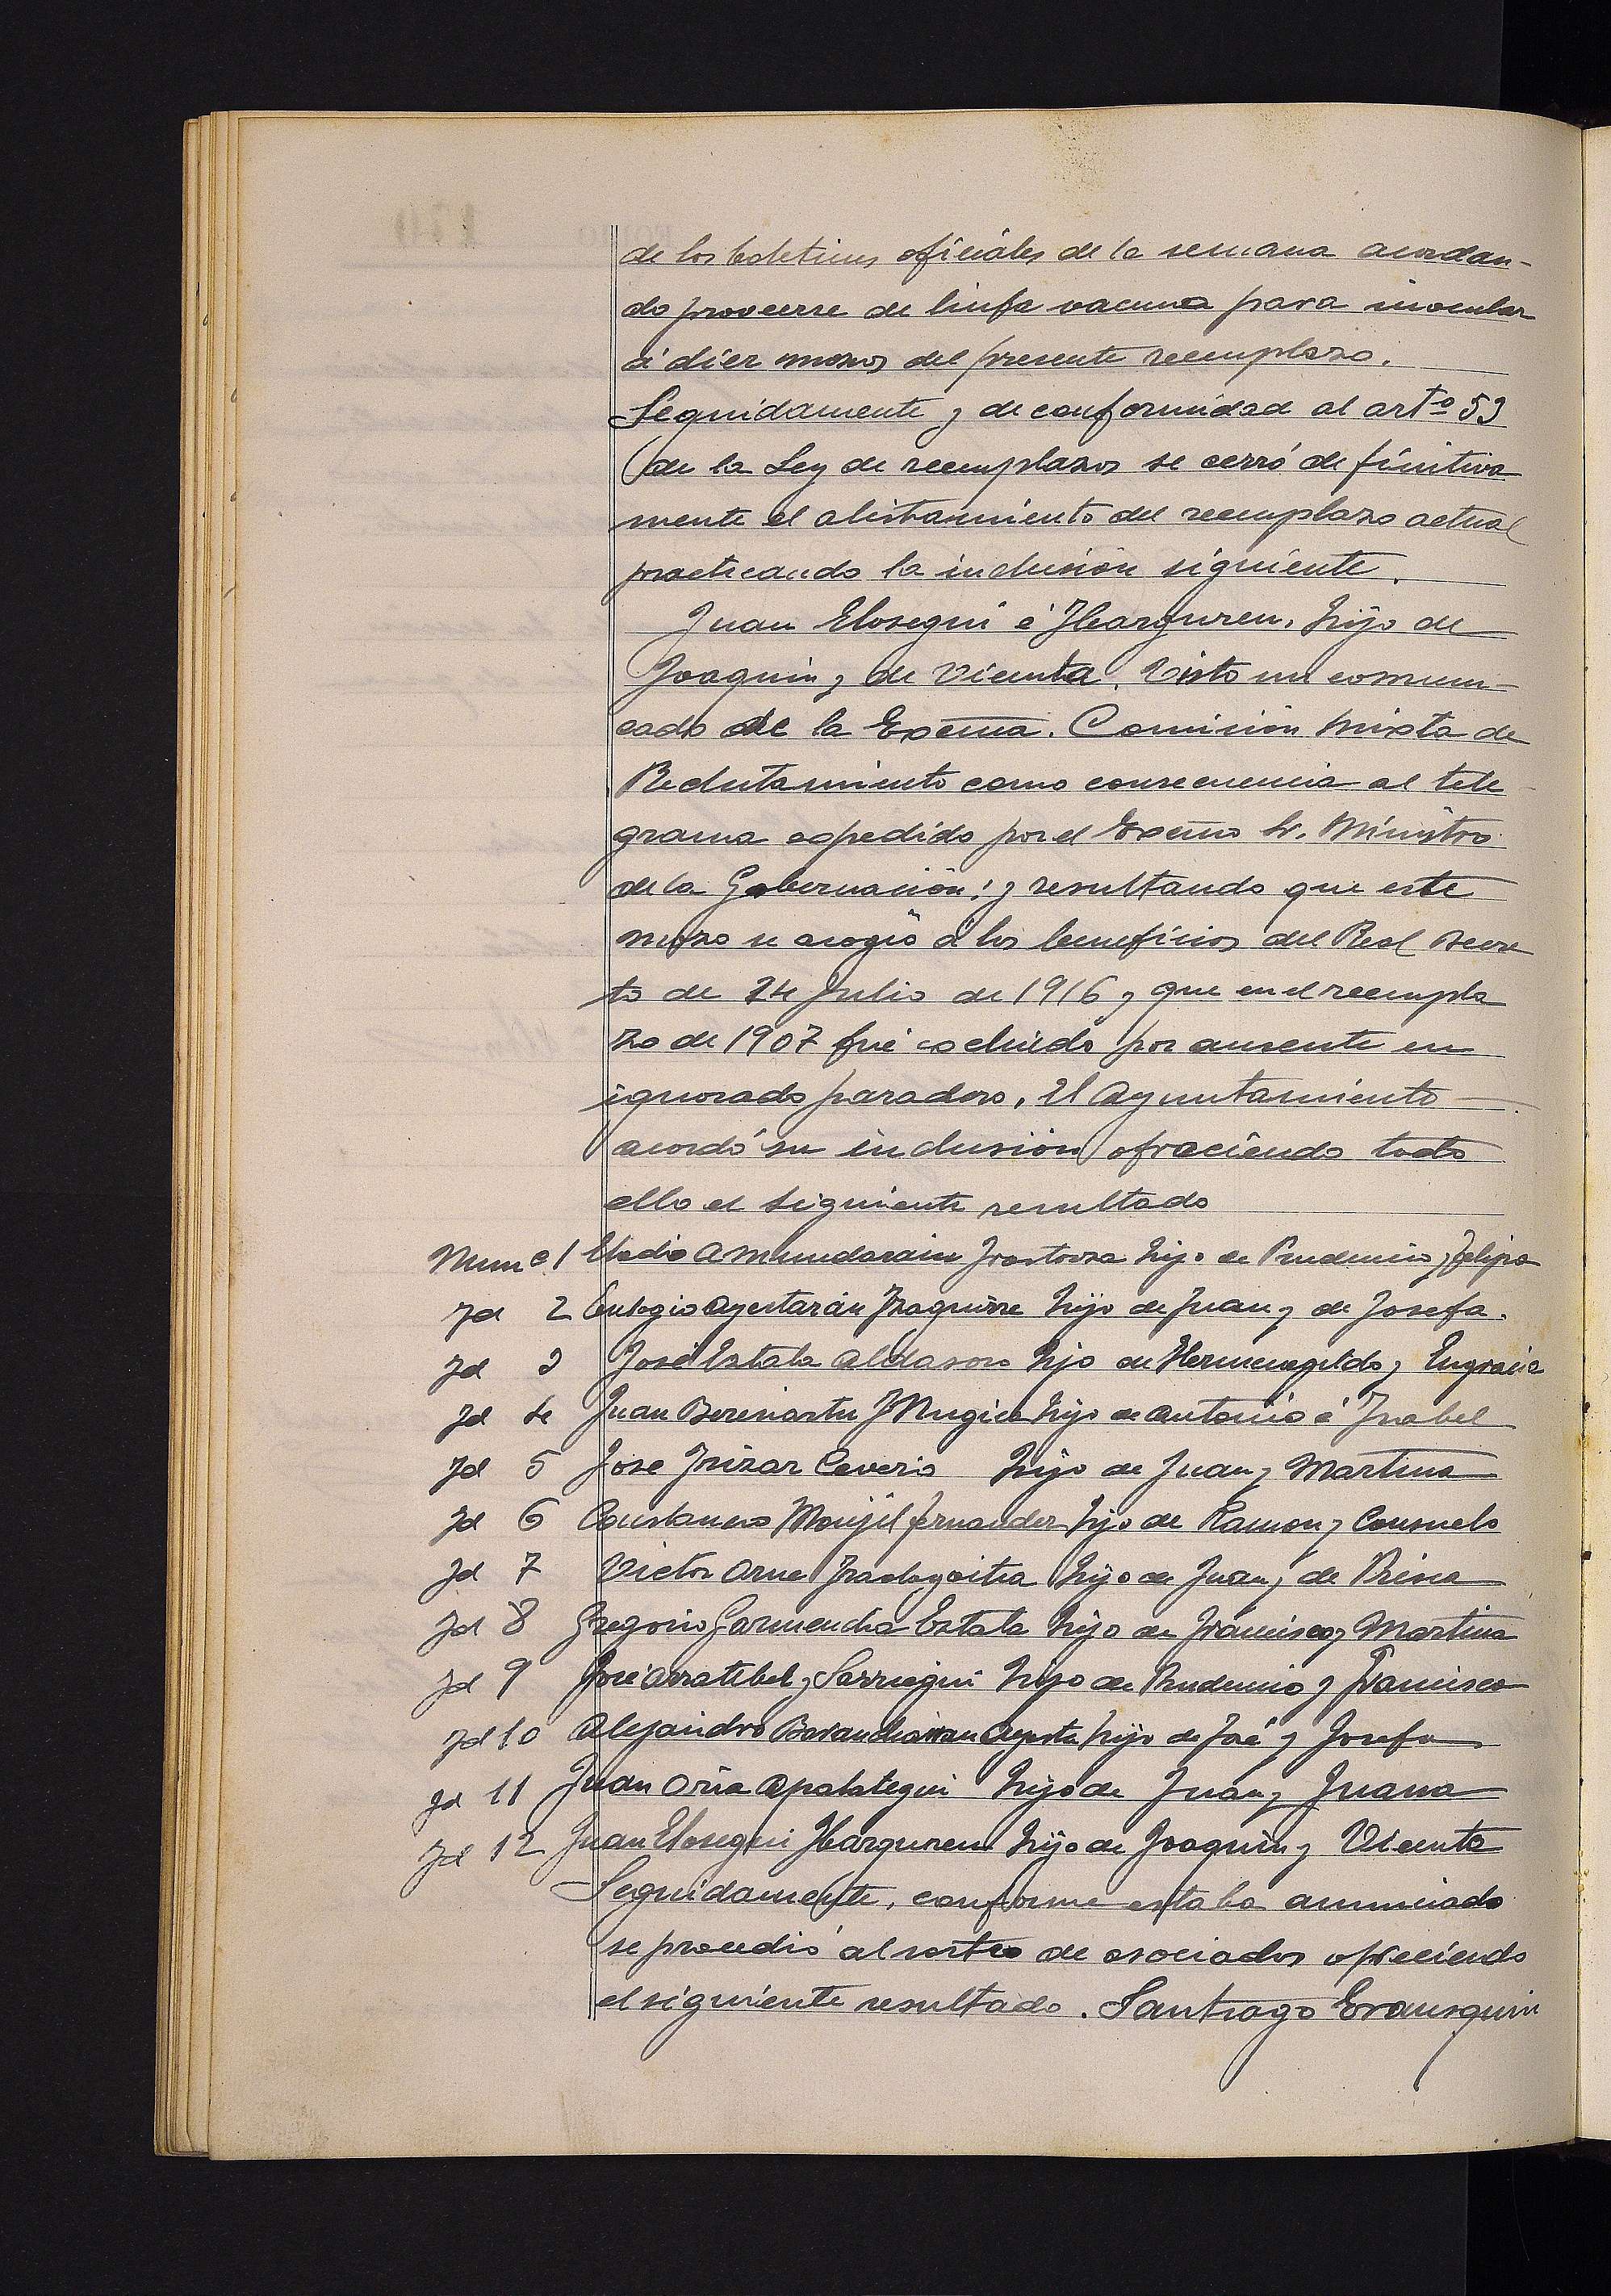 de los boletines oficiales de la semana acordan-
do proveerse de linfa vacuna para inocular
á diez mozos del presente reemplazo.
Seguidamente y de conformidad al artº 53
de la Ley de reemplazos se cerró definitiva
mente el alistamiento del reemplazo actual
practicando la inclusión siguiente.
Juan Elosegui é Ibarguren, hijo de
Joaquin y de Vicenta. Visto un comuni-
cado de la Excma. Comisión Mixta de
Reclutamiento como consecuencia al tele-
grama expedido por el Excmo Sr. Ministro
de la Gobernación: y resultando que este
mozo se acogió á los beneficios del Real decre
to de 24 Julio de 1916 y que en el reempla
zo de 1907 fué excluido por ausente en
ignorado paradero, El Ayuntamiento
acordó su inclusión ofraciendo todo
ello el siguiente resultado
Num e 1 Eladio Amundarain hijo de Prudencio y Felipa
Id 2 Eulogio Ayestarán Izaguirre hijo de Juan y de Josefa.
Id 3 José Estala Aldasoro hijo de Hermenegildo y Engracia
Id 4 Juan Bereciartu Mugica hijo de Antonio é Isabel
Id 5 Jose Irizar Ceverio hijo de Juan y Martina
Id 6 Constancio Monjil fernandez hijo de Ramon y Consuelo
Id 7 Victor Arrue hijo de Juan y de
Id 8 Gregorio Garmendia Estala hijo de Francisco y Martina
Id 9 José Arratibel y Sarriegui hijo de Prudencio y Francisca
Id 10 Alejandro Barandiaran hijo de José y Josefa
Id 11 Juan Oria Apalategui hijo de Juan y Juana
Id 12 Juan Elosegui Ibarguren hijo de Joaquin y Vicenta
Seguidamente, conforme estaba anunciado
se procedió al sorteo de asociados ofreciendo
el siguiente resultado. Santiago Erausquin